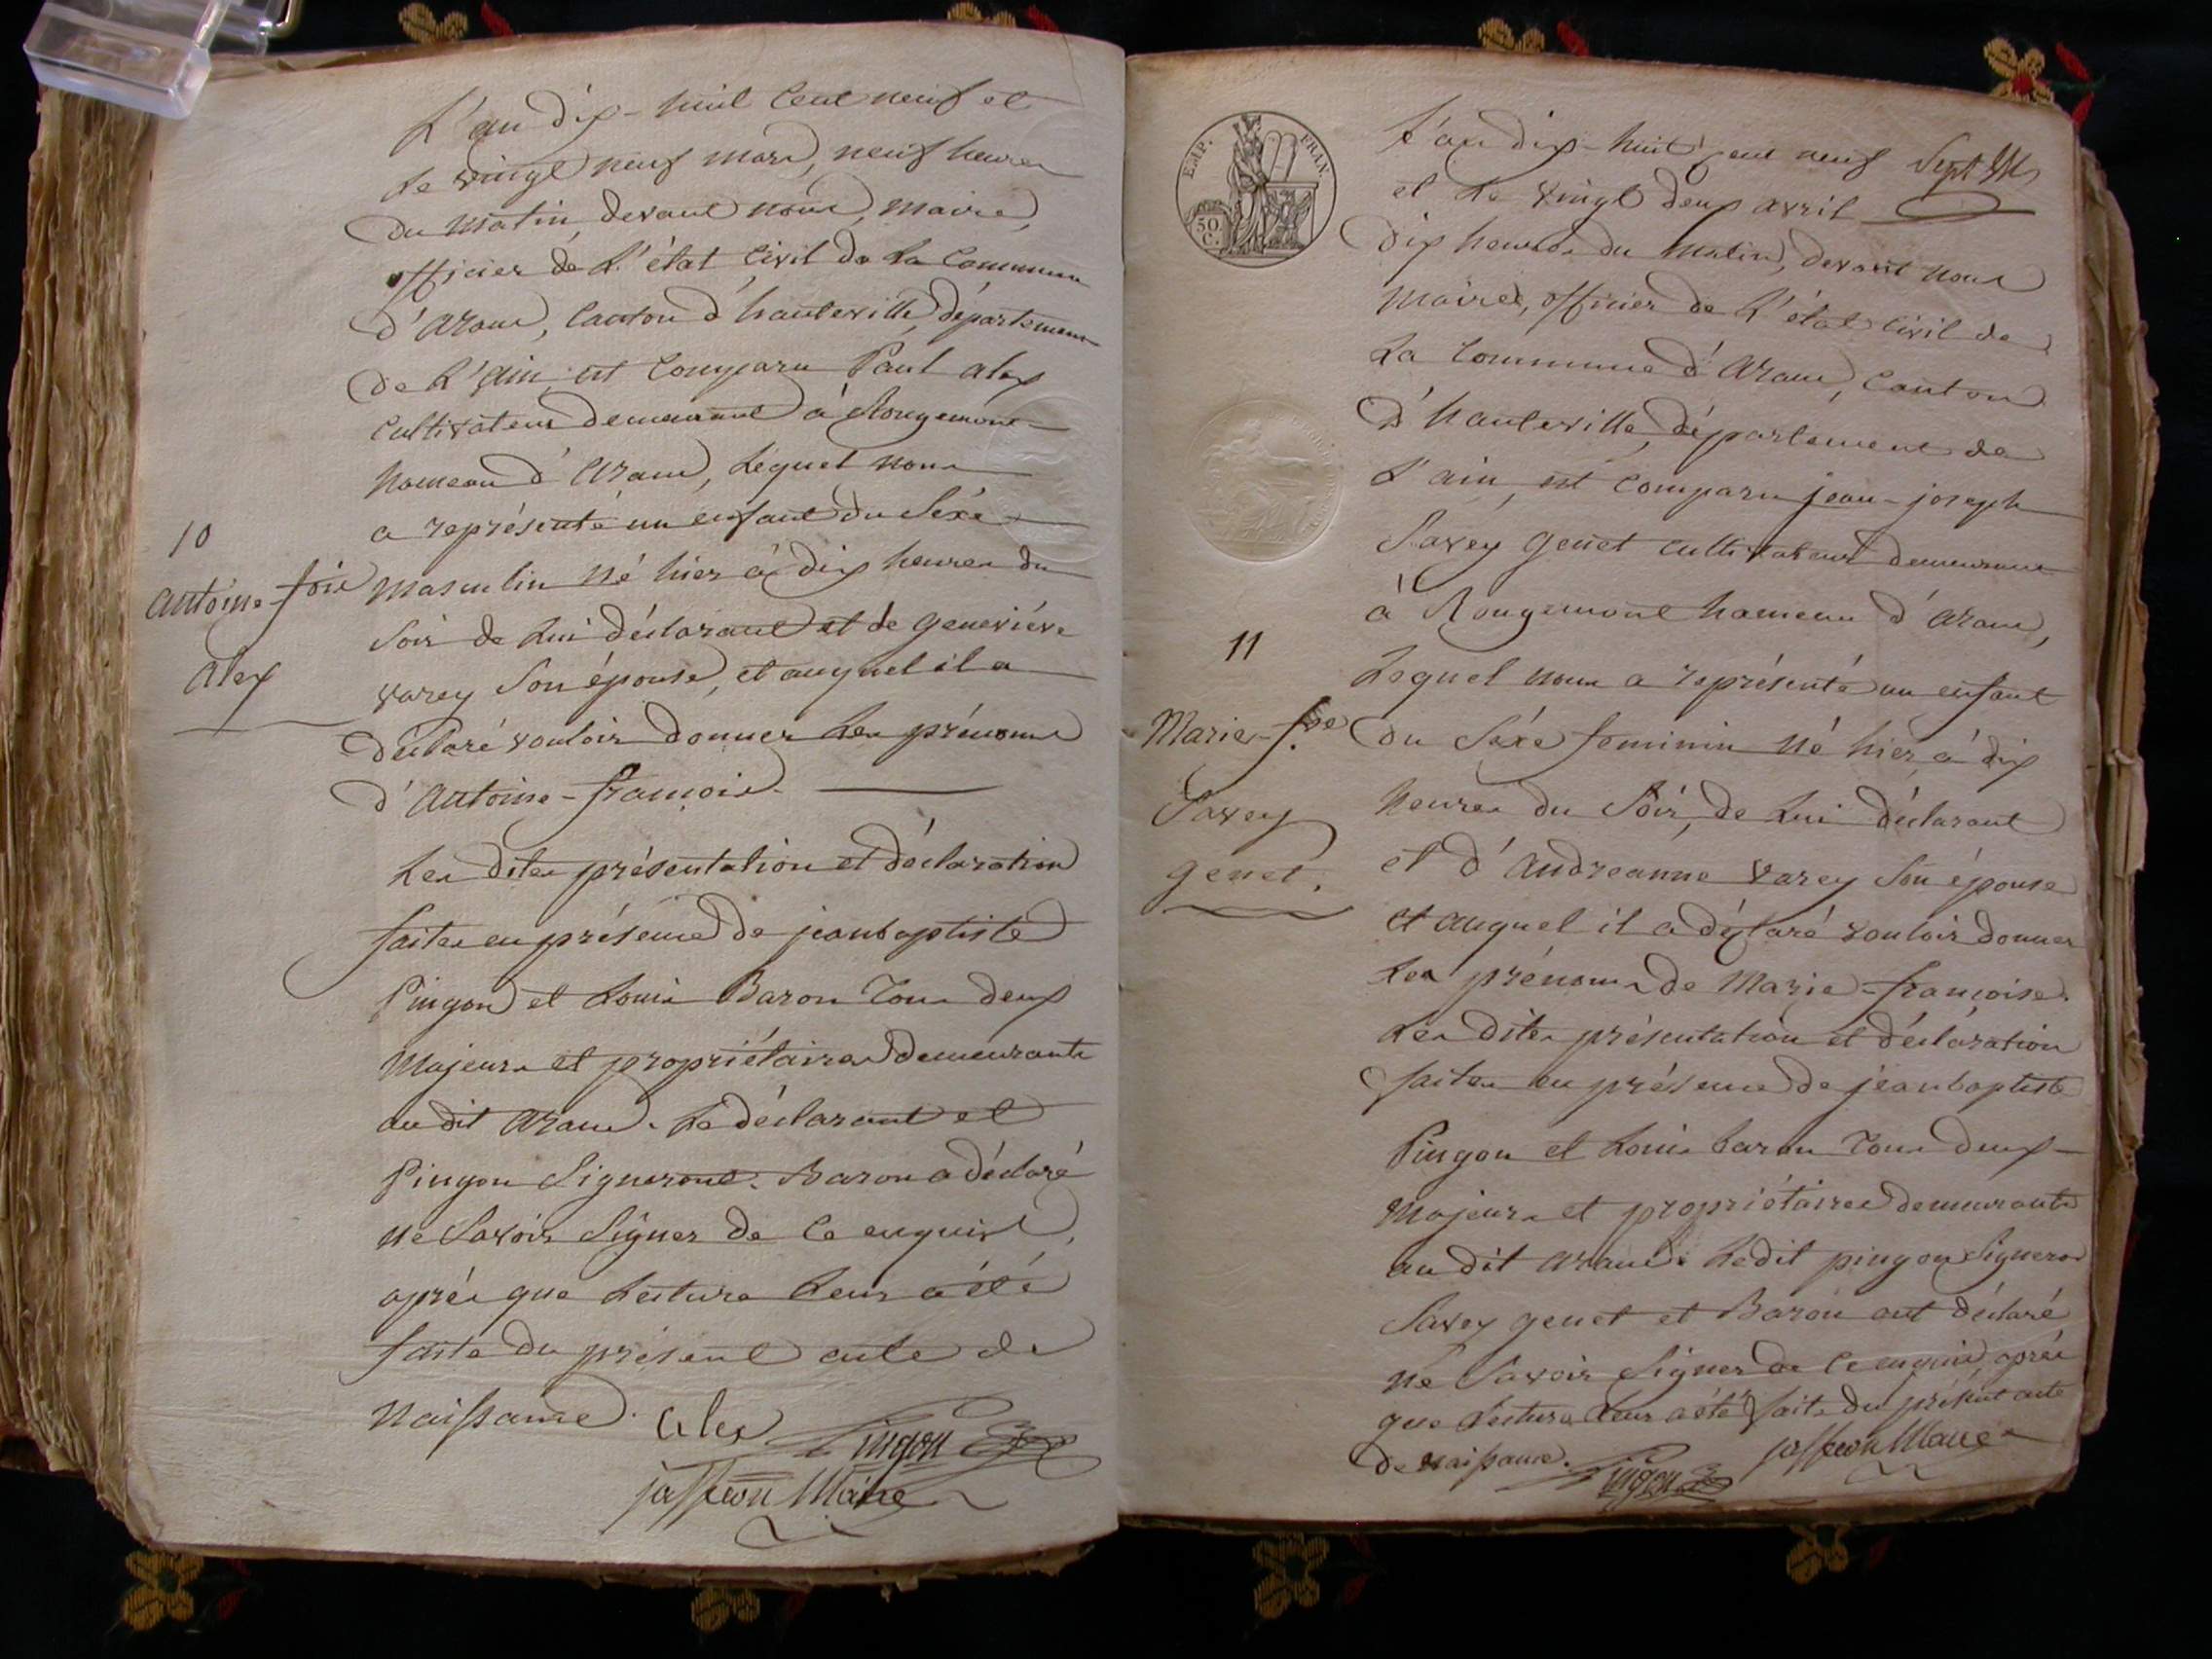 L'an dix-huit cent neuf et
le vingt neuf mars, neuf heures
du matin, devant nous, maire,
officier de L'état civil de La Commune
d'aranc, canton d'hauteville, département
de L'ain est comparu Paul alex
cultivateur demeurant à Rougemont
hameau d'aranc, Lequel nous
a représenté un enfant du Séxe
10
antoine-fois
alex
masculin né hier à dix heures du
soir de Lui déclarant et de genevieve
varey Son épouse, et auquel il a
déclaré vouloir donner Les prénoms
d'antoine-françois.
Les dites présentation et déclaration
faites en présence de jean baptiste
Pingon et Louis Baron tous deux
majeurs et propriétaires demeurants
au dit aranc. Le déclarant et
Pingon Signeront. Baron a déclaré
ne Savoir Signer de ce enquis,
après que Lecture Leur a été
faite du présent acte de
naissance. alex Pingon
jasseron Maire
EMP. FRAN.
50 C.
L'an dix-huit cent neuf Sept
et Le vingt deux avril
dix heures du matin, devant nous
maire, officier de L'état civil de
La Commune d'aranc, canton
d'hauteville, département de
L'ain, est comparu jean-joseph
Savey genet cultivateur demeurant
à Rougemont hameau d'aranc,
11
Marie-f.se
Savey
genet.
Lequel nous a représenté un enfant
du Séxe feminin né hier à dix
heures du Soir, de Lui déclarant
et d'andreanne varey Son épouse
et auquel il a déclaré vouloir donner
Les prénoms de Marie-françoise.
Les dites présentation et déclaration
faites en présence de jean baptiste
Pingon et Louis baron tous deux
majeurs et propriétaires demeurants
au dit aranc. Ledit pingon Signera
Savey genet et Baron ont déclaré
ne Savoir Signer de ce enquis, après
que Lecture Leur a été faite du présent acte
de naissance. Pingon jasseron Maire